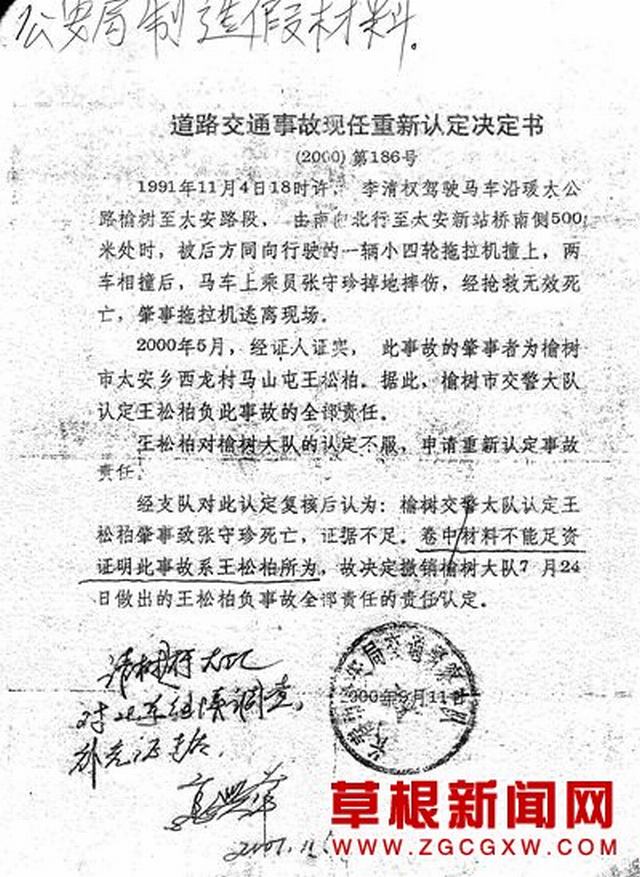 公安局制造假材料。
道路交通事故现任重新认定决定书
(2000)第186号
1991年11月4日18时许， 李清权驾驶马车沿瑗太公
路榆树至太安路段， 由南向北行至太安新站桥南侧500
米处时，被后方同向行驶的一辆小四轮拖拉机撞上，两
车相撞后，马车上乘员张守珍掉地摔伤，经抢救无效死
亡，肇事拖拉机逃离现场。
2000年5月，经证人证实， 此事故的肇事者为榆树
市太安乡西龙村马山屯王松柏。据此，榆树市交警大队
认定王松柏负此事故的全部责任。
王松柏对榆树大队的认定不服，申请重新认定事故
责任。
经支队对此认定复核后认为：榆树交警大队认定王
松柏肇事致张守珍死亡，证据不足。卷中材料不能足资
证明此事故系王松柏所为，故决定撤销榆树大队7月24
日做出的王松柏负事故全部责任的责任认定。
2000年9月11日
请榆树大队
对此案继续调查，
补充证据。
草根新闻网
WWW.ZGCGXW.COM